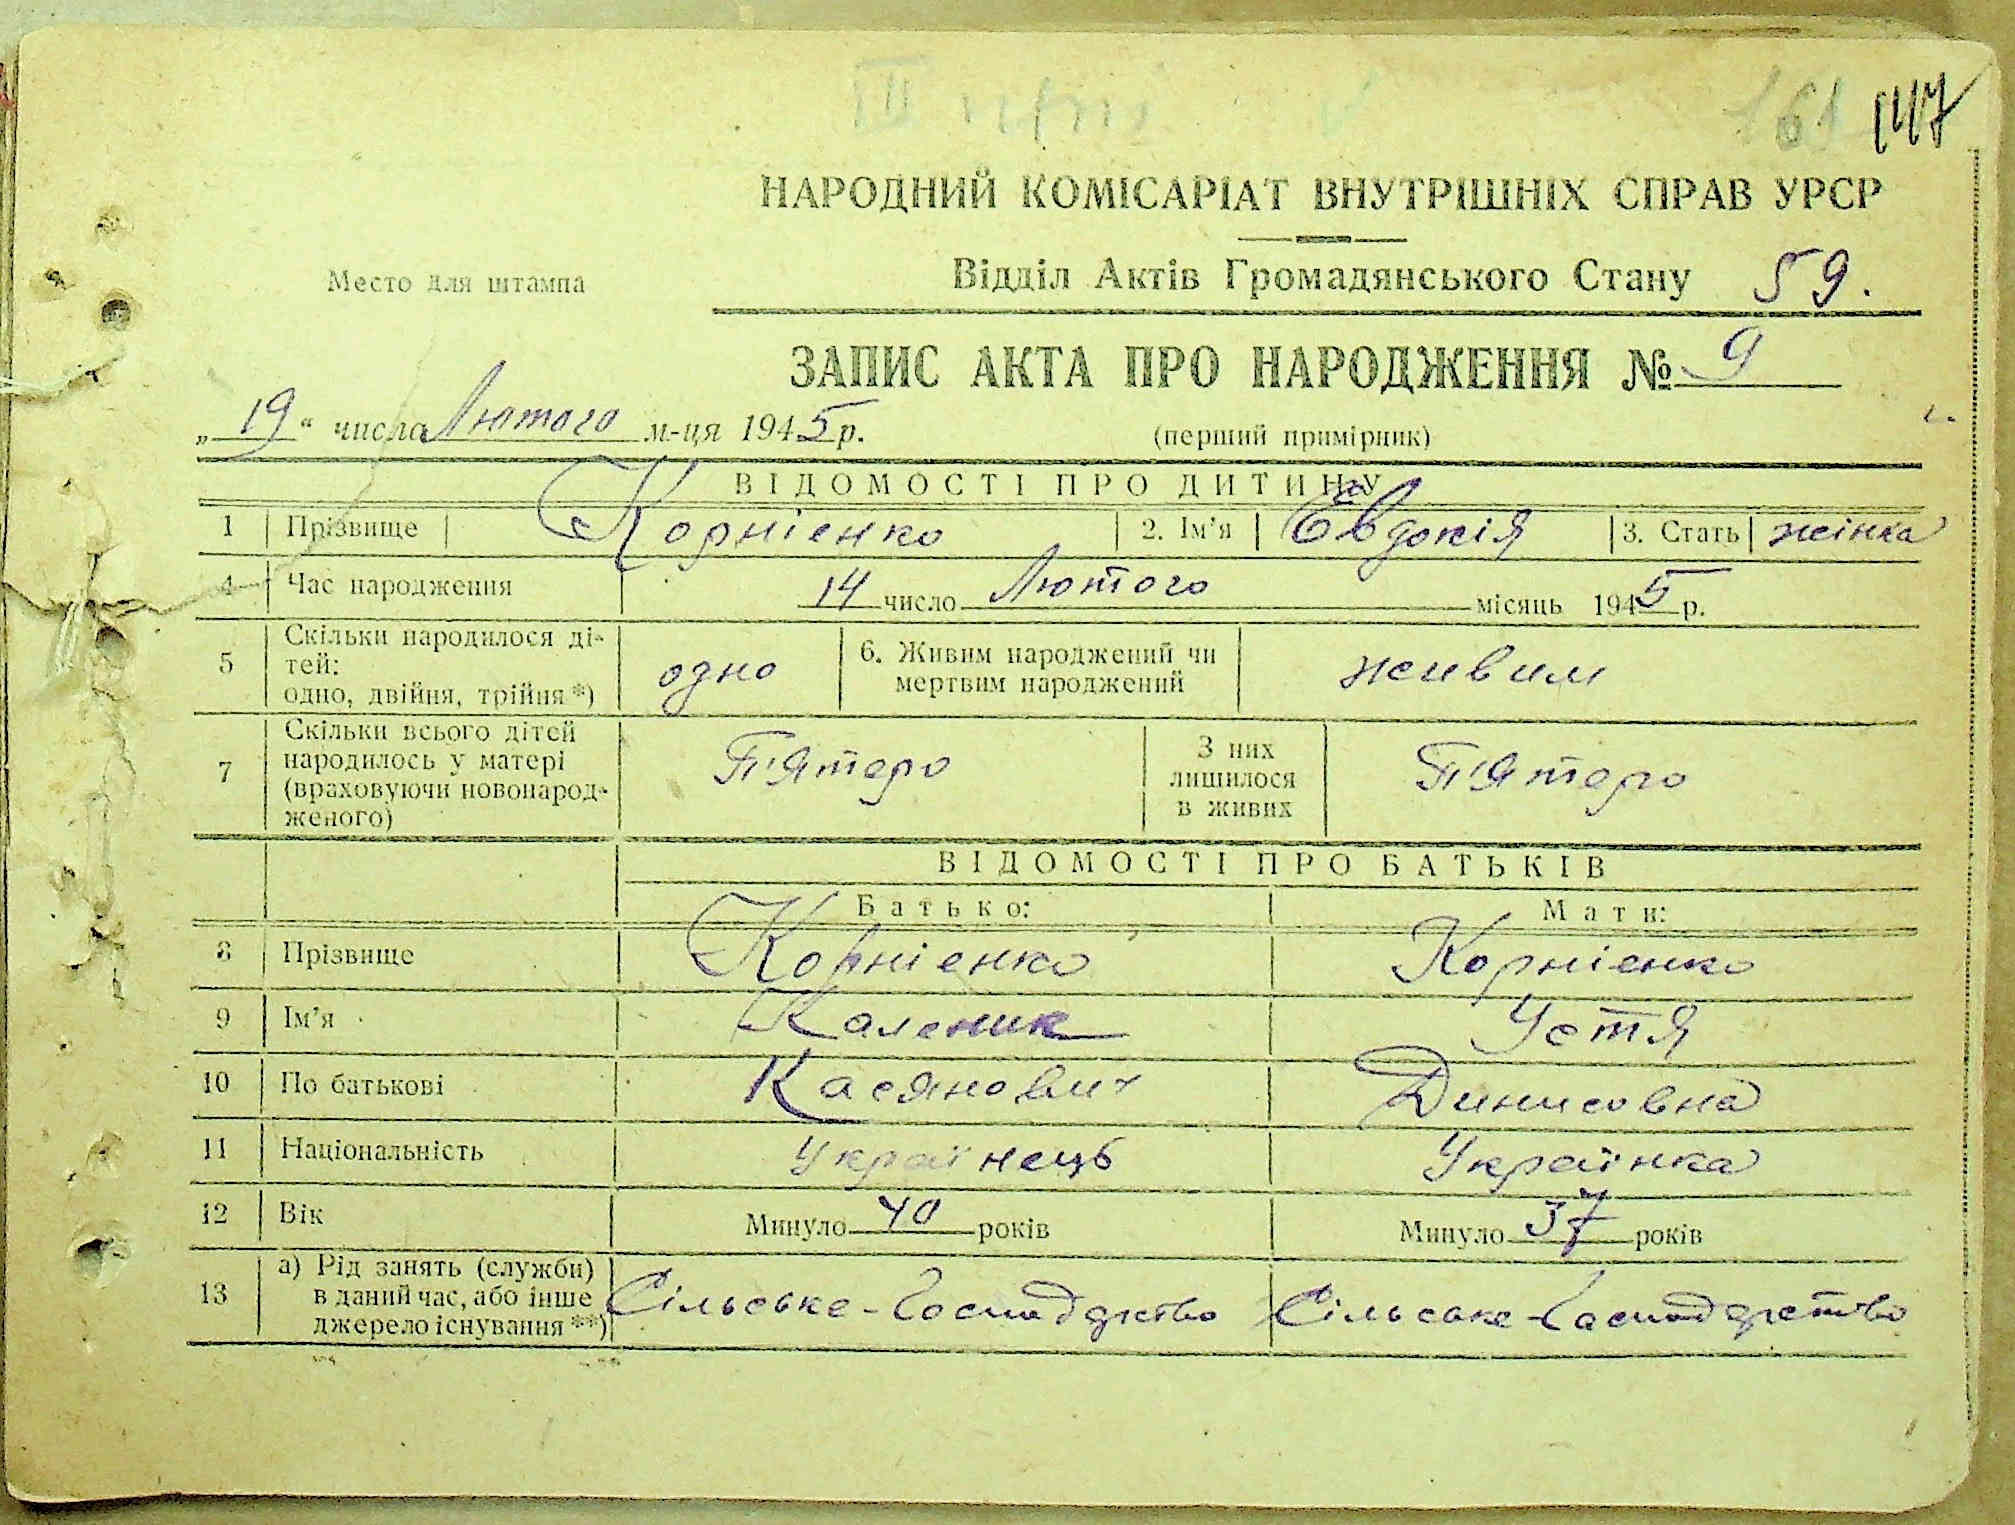 161 147
НАРОДНИЙ КОМІСАРІАТ ВНУТРІШНІХ СПРАВ УРСР
Место для штампа
Відділ Актів Громадянського Стану 59.
ЗАПИС АКТА ПРО НАРОДЖЕННЯ № 9
„19“ числа Лютого м-ця 1945 р.
(перший примірник)
ВІДОМОСТІ ПРО ДИТИНУ
1 Прізвище Корніенко 2. Ім'я Евдокія 3. Стать жінка
4 Час народження 14 число Лютого місяць 1945 р.
5 Скільки народилося ді-
тей:
одно, двійня, трійня*) одно 6. Живим народжений чи
мертвим народжений живим
7 Скільки всього дітей
народилось у матері
(враховуючи новонарод-
женого) П'ятеро З них
лишилося
в живих П'ятеро
ВІДОМОСТІ ПРО БАТЬКІВ
Батько: Мати:
8 Прізвище Корніенко Корніенко
9 Ім'я Каленик Устя
10 По батькові Касянович Динисовна
11 Національність Українець Українка
12 Вік Минуло 40 років Минуло 37 років
13 а) Рід занять (служби)
в даний час, або інше
джерело існування**) Сільське-Господарство Сільське-Господарство